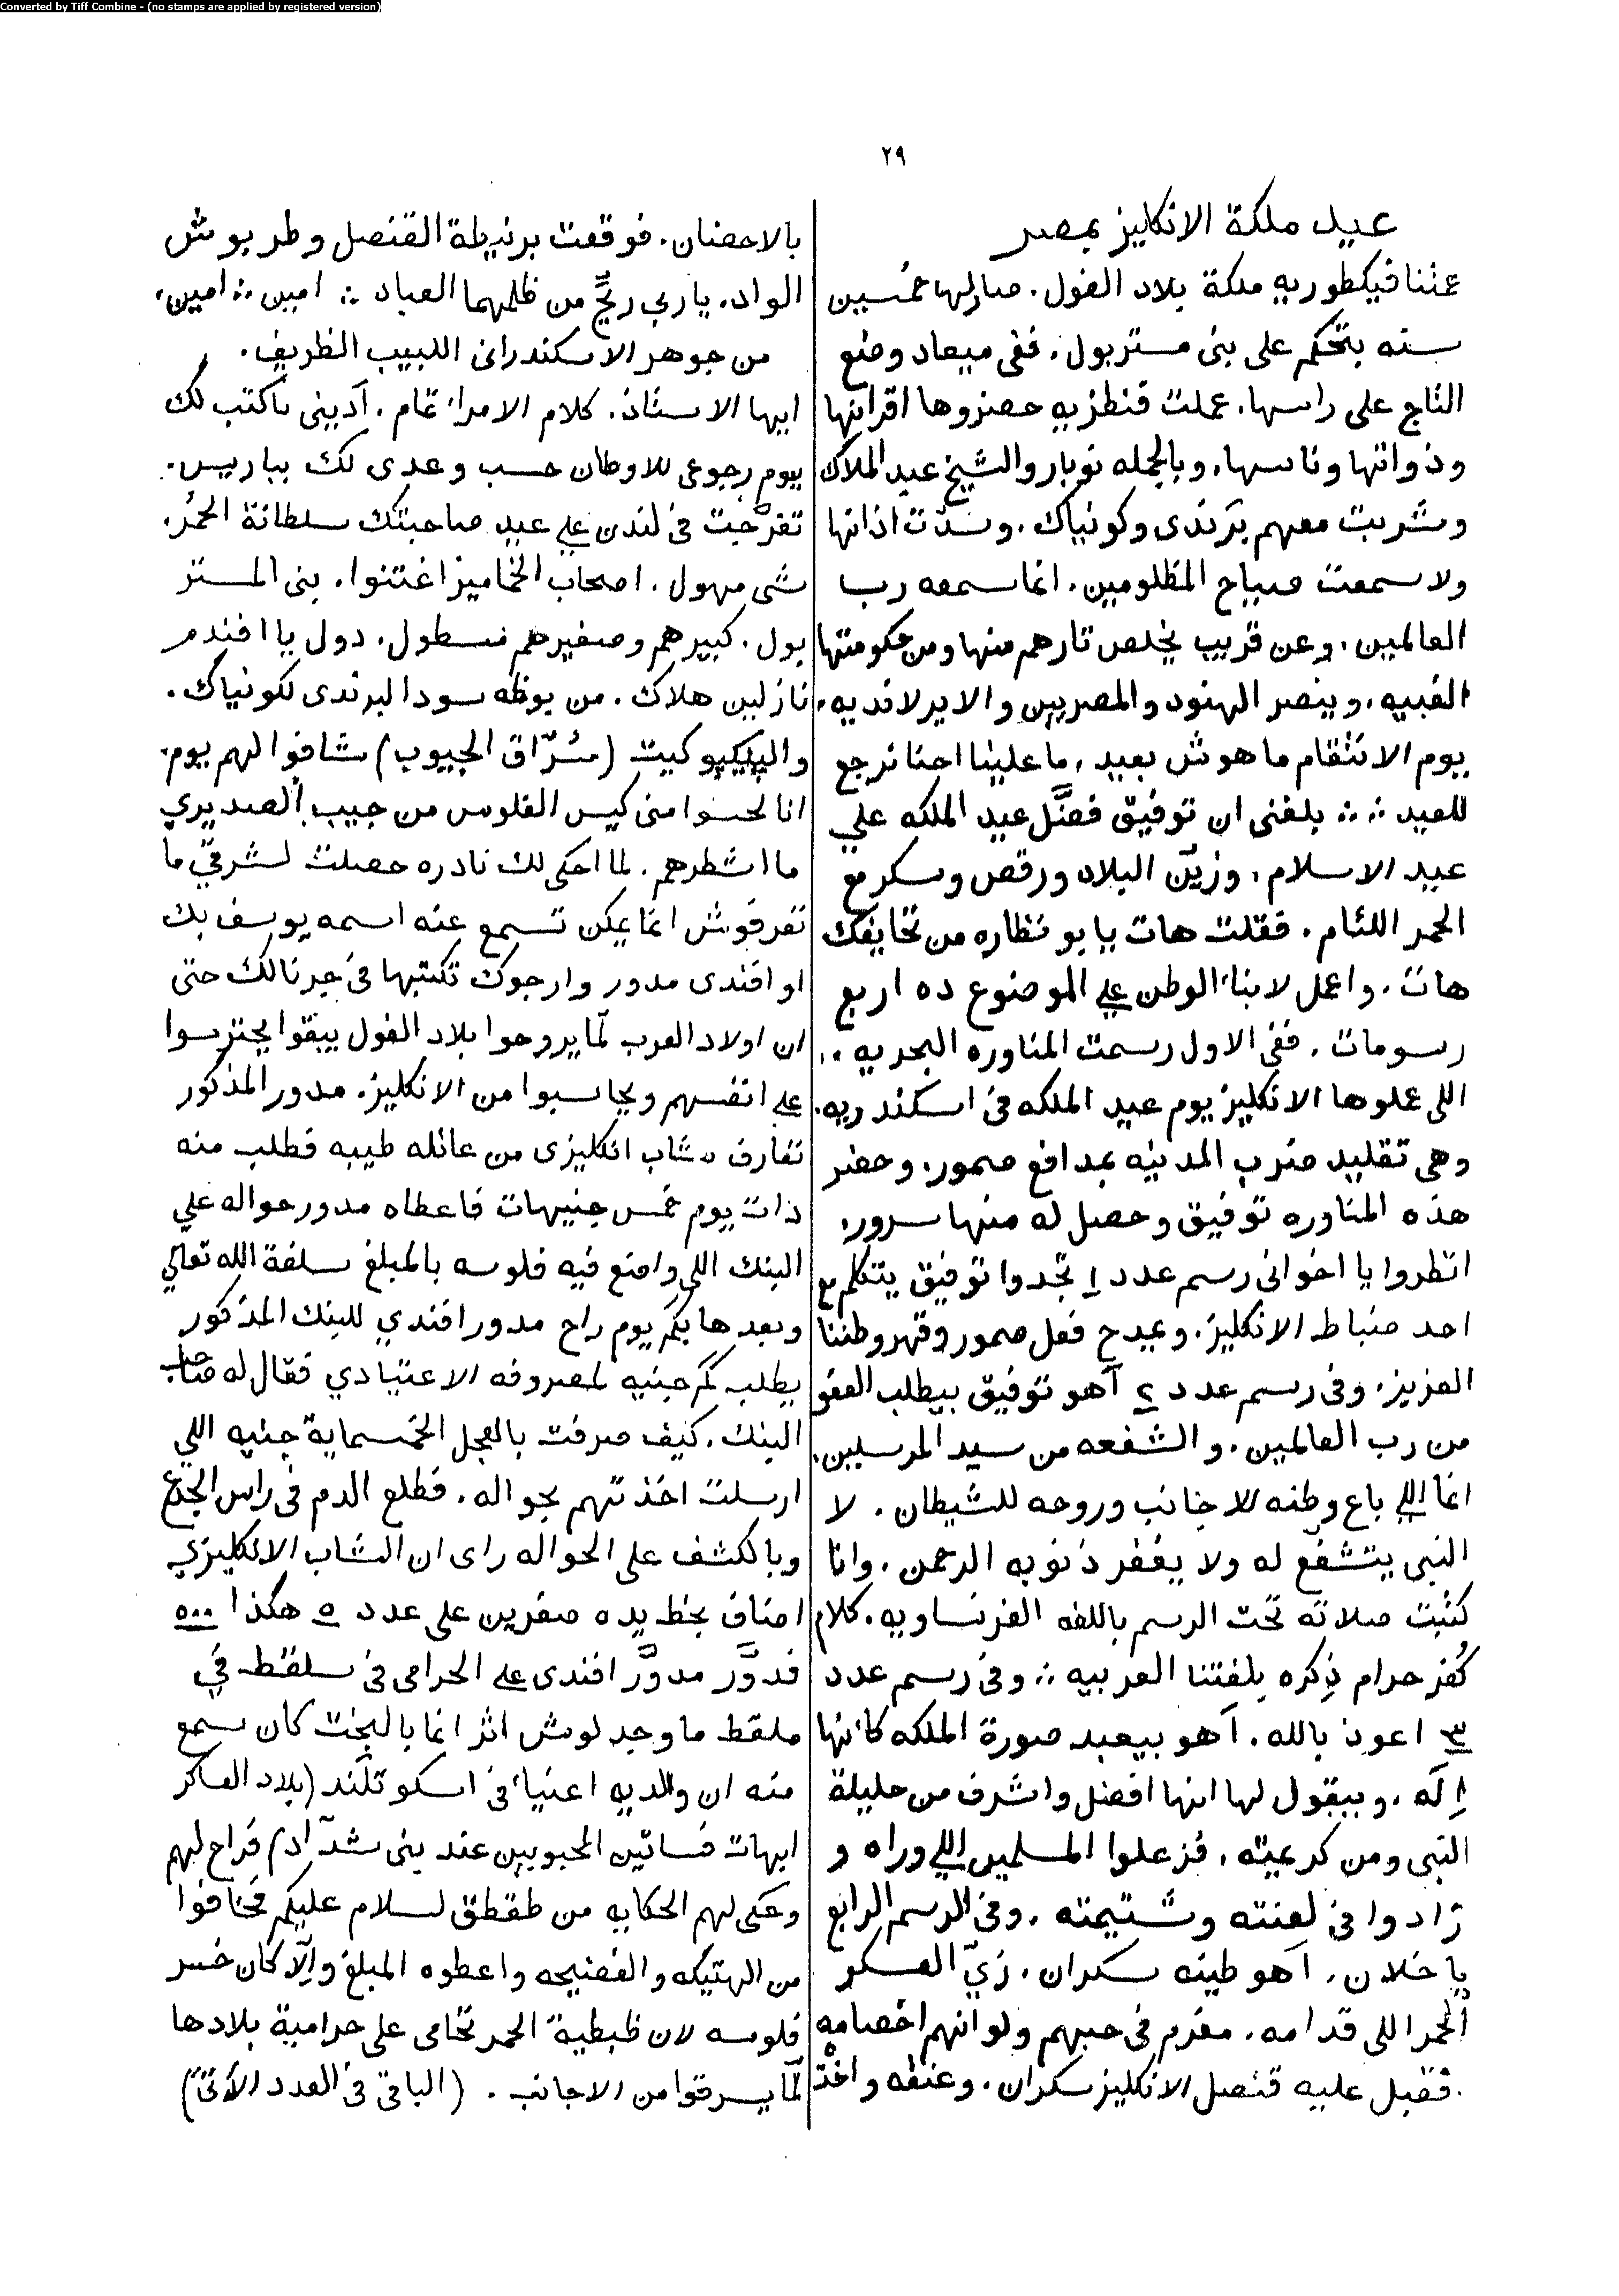 Converted by Tiff Combine - (no stamps are applied by registered version)
٢٩
عيد ملكة الانكليز بمصر
عمتنا فيكطوريه ملكة بلاد الفول. صار لها خمسين
سنه بتحكم على بنى مستربول. ففى ميعاد وضع
التاج على راسها. عملت فنطزيه حضروها اقرانها
وذواتها وناسها. وبالجمله نوبار والشيخ عبد الملاك
وشربت معهم برندى وكونياك. وسدّت اذانها
ولا سمعت صياح المظلومين. انما سمعه رب
العالمين. وعن قريب يخلص تارهم منها ومن حكومتها
الغبيه. وينصر الهنود والمصريين والايرلانديه.
يوم الانتقام ما هوش بعيد. ما علينا احنا نرجع
للعيد ∴ ∴ بلغنى ان توفيق فضَّل عيد الملكه علي
عيد الاسلام. وزيّن البلاد ورقص وسكر مع
الحمر اللئام. فقلت هات يا بو نظاره من تحايفك
هات. واعمل لابناء الوطن على الموضوع ده اربع
رسومات. ففى الاول رسمت المناوره البحريه ..
اللى عملوها الانكليز يوم عيد الملكه فى اسكندريه.
وهى تقليد ضرب المدينه بمدافع صمور. وحضر
هذه المناوره توفيق وحصل له منها سرور.
انظروا يا اخوانى رسم عدد ١ تجدوا توفيق يتكلم مع
احد ضباط الانكليز. ويمدح فعل صمور وقهر وطننا
العزيز. وفى رسم عدد ٢ آهو توفيق بيطلب العفو
من رب العالمين. والشفعه من سيد المرسلين.
انما اللي باع وطنه للاجانب وروحه للشيطان. لا
النبى يتشفّع له ولا يغفر ذنوبه الرحمن. وانا
كتبت صلاته تحت الرسم باللغه الفرنساويه. كلام
كُفر حرام ذِكره بلغتنا العربيه ∴ وفى رسم عدد
٣ اعوذ بالله. آهو بيعبد صورة الملكه كانها
اِلَه. وبيقول لها انها افضل واشرف من حليلة
النبى ومن كرعيته. فزعلوا المسلمين اللي وراه و
زادوا فى لعنته وشتيمته. وفى الرسم الرابع
يا خلان. آهو طينه سكران. زيّ العسكر
الحمر اللى قدامه. مغرم فى حبهم ولو انهم اخصامه
فقبل عليه قنصل الانكليز سكران. وعنقه واخذ
بالاحضان. فوقعت برنيطة القنصل وطربوش
الواد. يا ربى ريّح من ظلمهما العباد ∴ امين ∴ امين.
من جوهر الاسكندرانى اللبيب الظريف.
ايها الاستاذ. كلام الامراء تمام. آدينى باكتب لك
بيوم رجوعى للاوطان حسب وعدى لك بباريس.
تفرّجت فى لندن على عيد صاحبتك سلطانة الحمُر.
شى مهول. اصحاب الخماميز اغتنوا. بنى المستر
بول. كبيرهم وصغيرهم مسطول. دول يا افندم
نازلين هلاك. من بوظه سودا لبرندى لكونياك.
والپيكپوكيت (سُرّاق الجيوب) شافوا لهم يوم.
انا لحسوا منى كيس الفلوس من جيب الصديري
ما اشطرهم. لما احكى لك نادره حصلت لشرقيّ ما
تعرفوش انما يمكن تسمع عنه اسمه يوسف بك
او افندى مدور وارجوك تكتبها فى جرنالك حتى
ان اولاد العرب لمّا يروحوا بلاد الفول يبقوا يحترسوا
على انفسهم ويحاسبوا من الانكليز. مدور المذكور
تعارف بشاب انكليزى من عائله طيبه فطلب منه
ذات يوم خمس جنيهات فاعطاه مدور حواله علي
البنك اللى واضع فيه فلوسه بالمبلغ سلفة الله تعالي
وبعدها بكم يوم راح مدور افندي للبنك المذكور
يطلب كم جنيه لمصروفه الاعتيادي فقال له صاحب
البنك. كيف صرفت بالعجل الخمسماية جنيه اللي
ارسلت اخذتهم بحواله. فطلع الدم فى راس الجدع
وبالكشف على الحواله راى ان الشاب الانكليزي
اضاف بخط يده صفرين على عدد ٥ هكذا ٥٠٠
فدوَّر مدوَّر افندى على الحرامى فى سلقط في
ملقط ما وجد لوش اثر انما بالبخت كان سمع
منه ان والديه اغنياء فى اسكوتلَند (بلاد العساكر
ابهات فساتين المحبوبين عند بنى شدّاد) فراح لهم
وحكى لهم الحكايه من طقطق لسلام عليكم فخافوا
من الهتيكه والفضيحه واعطوه المبلغ والّا كان خسر
فلوسه لان ظبطية الحمر تحامى على حرامية بلادها
لمّا يسرقوا من الاجانب. (الباقى فى العدد الآتى)